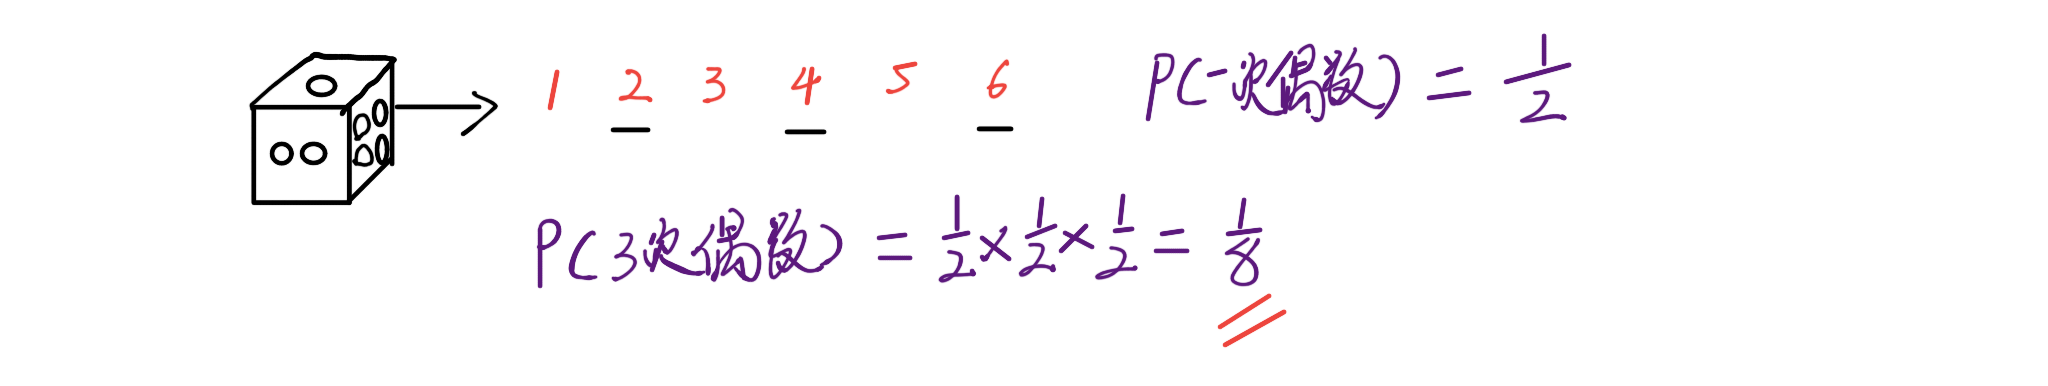 1 2 3 4 5 6 P(一次偶数) = 1/2
P(3次偶数) = 1/2 × 1/2 × 1/2 = 1/8